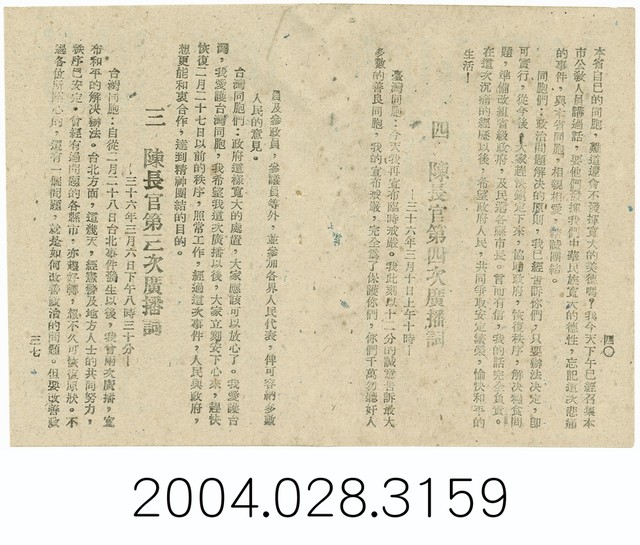 四〇
本省自已的同胞，難道還會不發揮寬大的美德嗎？我今天下午已經召集本
市公教人員講過話，要他們發揮我們中華民族寬大的德性，忘記這次悲痛
的事件，與本省同胞，相親相愛，精誠團結。
同胞們：政治問題解決的原則，我已經告訴你們，只要辦法決定，卽
可實行，從今後，大家趕快鎮定下來，協助政府，恢復秩序，解決糧食問
題，準備改組省級政府，及民選各縣市長。言而有信，我的話完全負責。
在這次沉痛的經歷以後，希望政府人民，共同爭取安定繁榮，愉快和平的
生活！
四 陳長官第四次廣播詞
—三十六年三月十日上午十時—
臺灣同胞：今天我再宣布臨時戒嚴。我此刻以十二分的誠意告訴最大
多數的善良同胞，我的宣布戒嚴，完全爲了保護你們，你們千萬勿聽奸人
員及參政員，參議員等外，並參加各界人民代表，俾可容納多數
人民的意見。
台灣同胞們：政府這樣寬大的處置，大家應該可以放心了。我愛護台
灣，我愛護台灣同胞，我希望我這次廣播以後，大家立刻安下心來，趕快
恢復二月二十七日以前的秩序，照常工作，經過這次事件，人民與政府，
想更能和衷合作，達到精神團結的目的。
三 陳長官第三次廣播詞
—三十六年三月六日下午八時三十分—
台灣同胞：自從二月二十八日台北事件發生以後，我曾兩次廣播，宣
布和平的解決辦法。台北方面，這幾天，經憲警及地方人士的共同努力，
秩序已安定。曾經有過問題的各縣市，亦趨好轉，想不久可恢復原狀。不
過各位所關心的，還有一個問題，就是如何改善政治的問題。但要改善政
三七
2004.028.3159